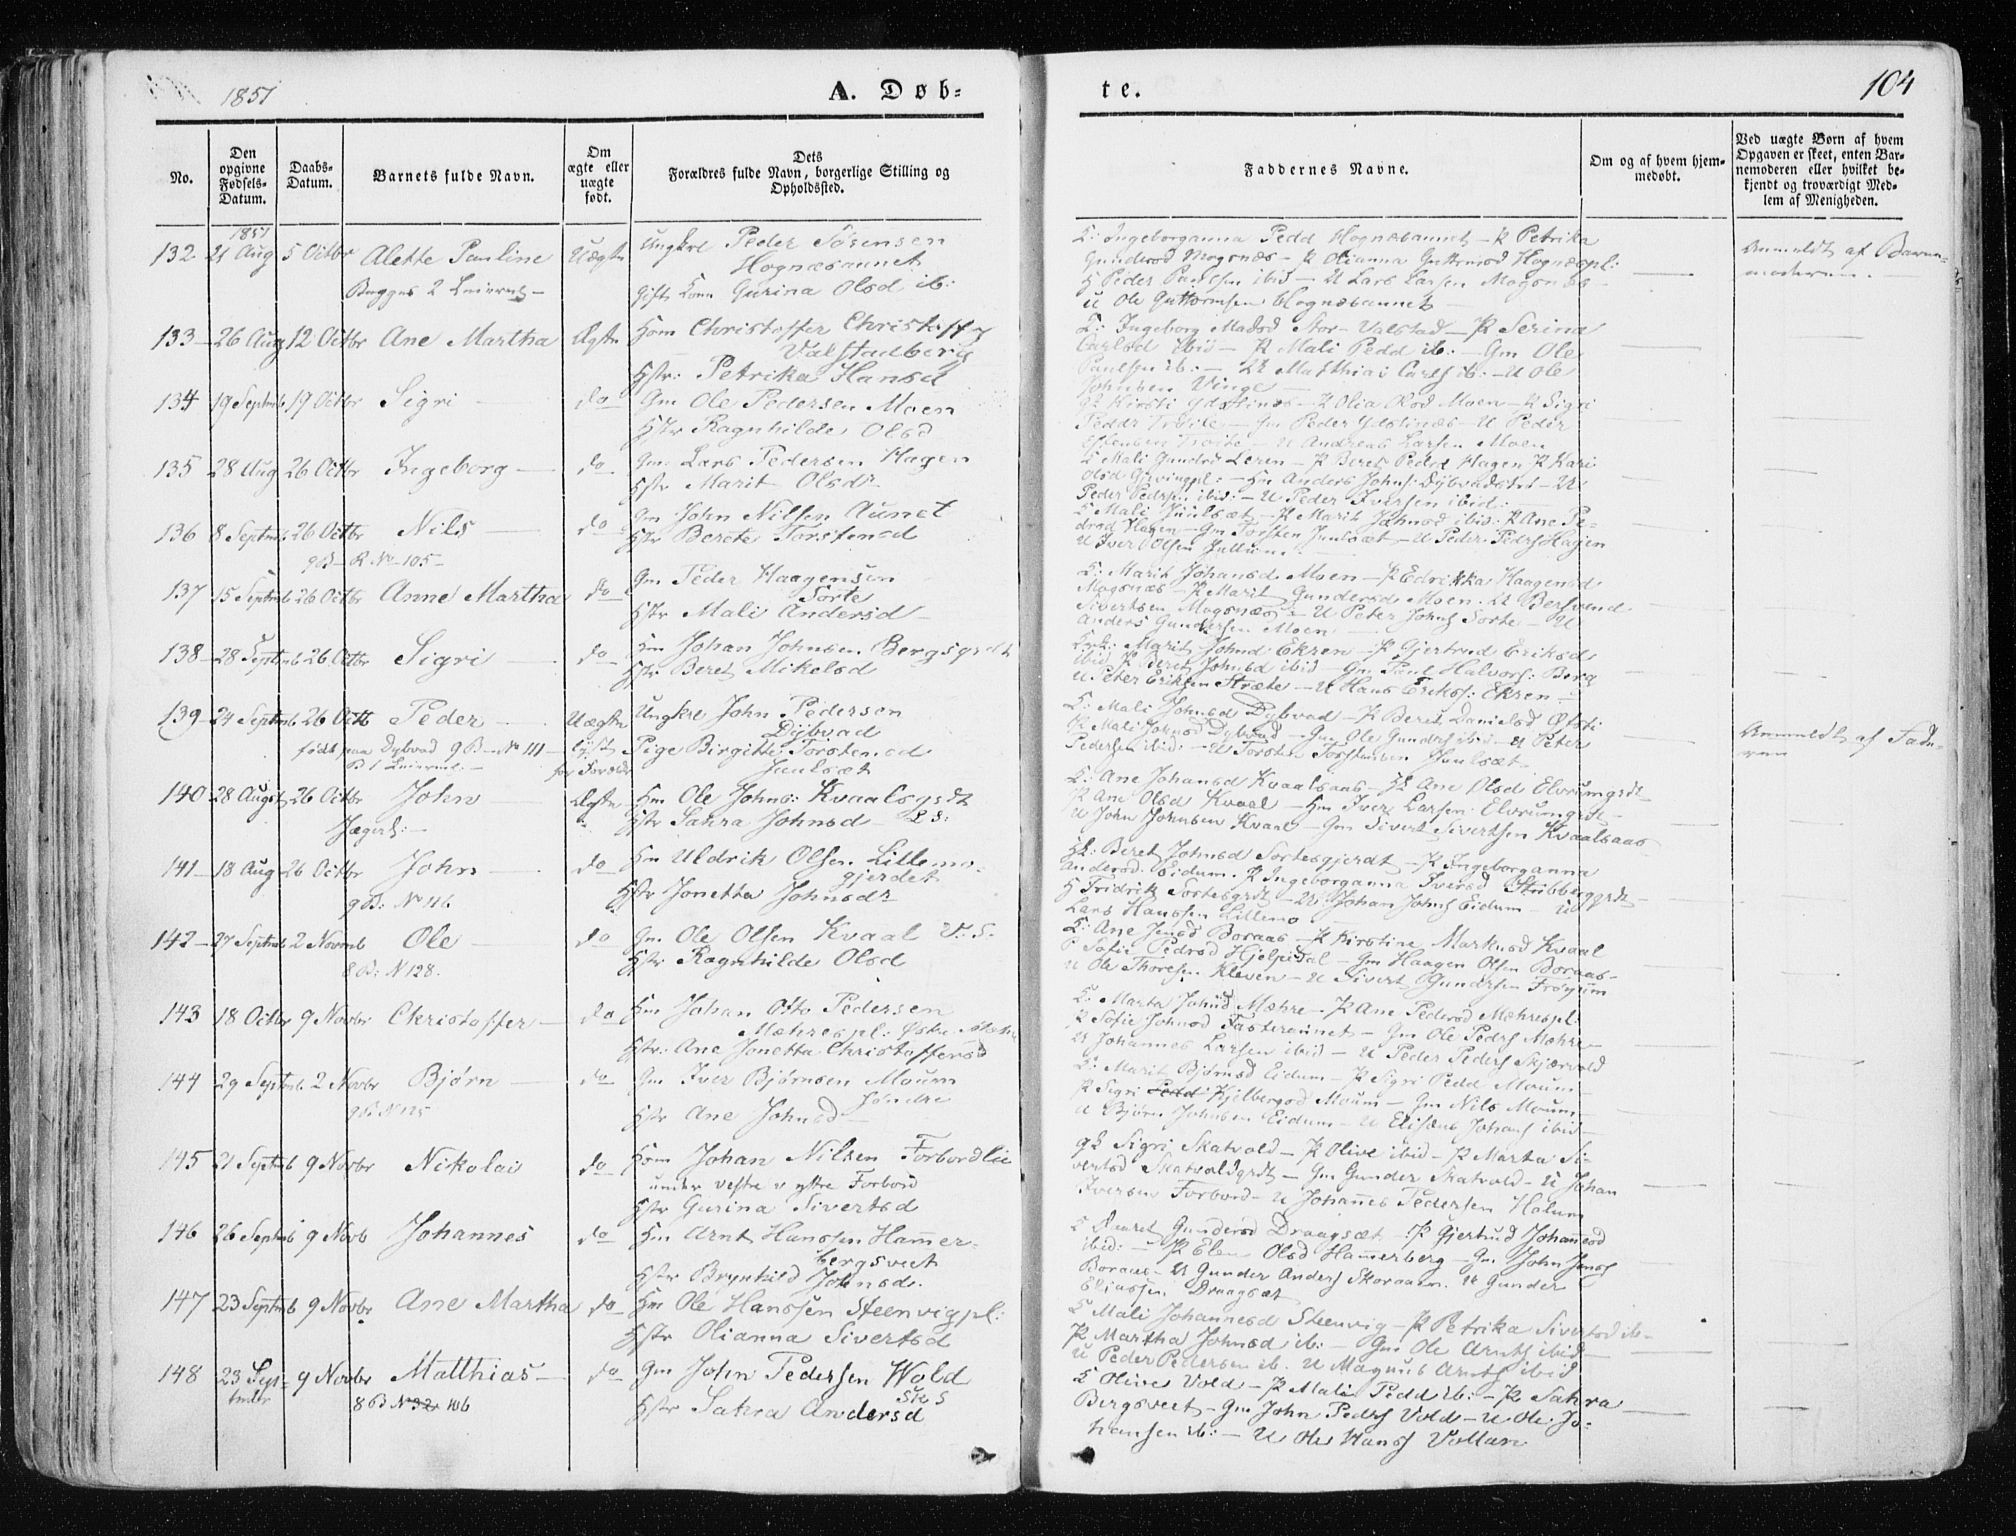 1851 A. Døb= te. 104
No.
Den opgivne Fødsels-Datum.
Daabs-Datum.
Barnets fulde Navn.
Om ægte eller uægte født.
Dets Forældres fulde Navn, borgerlige Stilling og Opholdssted.
Faddernes Navne.
Om og af hvem hjem-medøbt.
Ved uægte Børn af hvem Opgaven er skeet, enten Bar-nemoderen eller hvilket be-kjendt og troværdigt Med-lem af Menigheden.
1851
132. 21 Aug 5 Octbr Alette Pauline Uægte Ungkrl Peder Sørensen
Hognæsaunet
Gurina Olsd ib:
Anmeldt af Barne-
moderen.
K: Ingeborganna Pedd Hognæsaunet - P Petrika
Gundersd Mogsnæs - P Olianna Guttormsd Hognæspl:
H Peder Paulsen ibid - U Lars Larsen Mogsnæs
U Ole Guttormsen Hognæsaunet
133 26 Aug 12 Octbr Ane Martha Ægte Hom Christoffer Christoff
Valstadberg
Hstr: Petrika Hansd
K: Ingeborg Madsd Stor-Valstad - P Serina
Carlsd ibid - P Mali Pedd ib: - Gm Ole
Paulsen ib: - U Matthias Carls ib: - U Ole
Johnsen Vinge
134 19 Septmb 19 Octbr Sigri do Gm Ole Pedersen Moen
Hstr Ragnhilde Olsd
P Olia Olsd Moen - P Sigri
U Andreas Larsen Moen
135 28 Aug 26 Octbr Ingeborg do Gm: Lars Pedersen Hagen
Hstr Marit Olsdr
K Mali Gundsd Leren - P Beret Pedsd Hagen P Kari
Peder Pedersen ibid: - U Peder Iversen ibid:
136 8 Septmb 26 Octbr Nils do Gm John Nilsen Aunet
Hstr Berete Torstensd
9 B - R No 105 -
K Mali Juulsæt - P Marit Johnsd ibid: P Ane Pe-
drsd Hagen - Gm Torsten Juulsæt - U Peder Pedrs Hagen
U Iver Olsen Jullum
137 15 Septmb 26 Octbr Anne Martha do Gm Peder Haagensen
Sorte
Hstr Mali Andersd -
K: Marit Johansd Moen - P Edrikka Haagensd
Mogsnæs - P Marit Gundersd Moen. U Bersvend
Sivertsen Mogsnæs - U Peter Johns Sorte - U
Anders Gundersen Moen
138 28 Septmb 26 Octbr Sigri do Hm Johan Johnsen Bergsgrdt
Hstr Beret Mikelsd
Marit Johnsd Ekren - P Gjertrud Eriksd
ibid P Beret Johnsd ibid - Gm Paul Halvors: Berg
U Peter Eriksen Stræte - U Hans Eriks: Ekren -
139 24 Septmb 26 Octb Peder Uægte Ungkrl John Pedersen
Dybvad
Pige Birgitte Torstensd
Juulsæt
født paa Dybvad 9 B - No 111
Anmeldt af Fade-
ren
K: Mali Johnsd Dybvad - P Beret Danielsd Øfsti
P Mali Johnsd Dybvad - Gm Ole Gunders ibid - U Peter
Pedersen ibid: - U Torsten Torstensen Juulsæt
140 28 August 26 Octbr John Ægte Hm Ole Johns: Kvaalsgrdt
Hstr Sahra Johnsd - L S:
Jægert: -
K: Ane Johansd Kvaalsaas - Gk Ane Olsd Elvrumgrdt
P Ane Olsd Kvaal - Hm Iver Larsen Elvrumgrdt
U John Johnsen Kvaal - Gm Sivert Sivertsen Kvaalsaas
141 18 Aug 26 Octbr John do Hm Uldrik Olsen Lillemo-
gjerdet
Hstr Jonetta Johnsdr
9 B: No 116
Gk: Beret Johnsd Sortesgjerdt - P Ingeborganna
Andersd Eidum. P Ingeborganna Iversd Stubberggrdt
H Fridrik Sortesgrdt - U Johan Johns Eidum U
Lars Hanssen Lillemo
142 27 Septmb 2 Novmb Ole do Gm. Ole Olsen Kvaal V: S.
Hstr Ragnhilde Olsd
8 B: N 128.
K: Ane Jensd Boraas - P Kirstine Markusd Kvaal
P Sofie Pedrsd Hjelpsdal - Gm Haagen Olsen Boraas -
U Ole Thoresen Kleven - U Sivert Gundersen Frøysum
143 18 Octbr 9 Novbr Christoffer do Hm Johan Otto Pedersen
Mæhrespl:
Hstr: Ane Jonetta Christoffersd
K: Marta Johnsd Mæhre - P Ane Pedersd Mæhrespl:
P Sofie Johnsd Fasteraunet - Gm Ole Peders Mæhre -
U Johannes Larsen ibid - U Peder Peders Skjærvold
144 29 Septmb. 2 Novbr Bjørn do Gm Iver Bjørnsen Moum
søndre
Hstr Ane Johnsd
9 B N 125
K: Marit Bjørnsd Eidum - P Sigri Pedd Moum
P Sigri Kjelbergsd Moum - Gm Nils Moum -
U Bjørn Johnsen Eidum - U Elisæus Johans ibid -
145 21 Septmb 9 Novbr Nikolai do Hom Johan Nilsen Forbordlie
under vestre v ystre Forbord
Hstr Gurina Sivertsd
gk Sigri Skatvold - P Olive ibid - P Marta Si-
vertsd Skatvoldgrdt - Gm Gunder Skatvold - U Johan
Iversen Forbord - U Johannes Pedersen Holum
146 26 Septmb 9 Novb Johannes do Hm Arnt Hanssen Hammer-
bergsveet
Hstr Brynhild Johnsd.
Gundersd Draagsæt - P Gjertrud Johannesd
ibid: - P Elen Olsd Hammerberg - Gm John Jens
Boraas - U Gunder Anders Skoraasm. U Gunder
Eliassen Draagsæt
147 23 Septmb 9 Novbr Ane Martha do Hm Ole Hanssen Steenvigpl:
Hstr Olianna Sivertsd
K Mali Johannesd Steenvig - P Petrika Sivertsd ib -
P Martha Johnsd ib: - Gm Ole Arnts ibid -
U Peder Pedersen ib. U Magnus Arnts ibid
148 23 Sep-
tmber 9 Novbr Matthias do Gm John Pedersen Wold
Hstr Sahra Andersd
8 B No 32 106
K Olive Vold - P Mali Pedd ib: - P Sahra
Bergsveet - Gm John Peders Vold - U Ole Jo-
hansen ib: - U Ole Hans Vollan